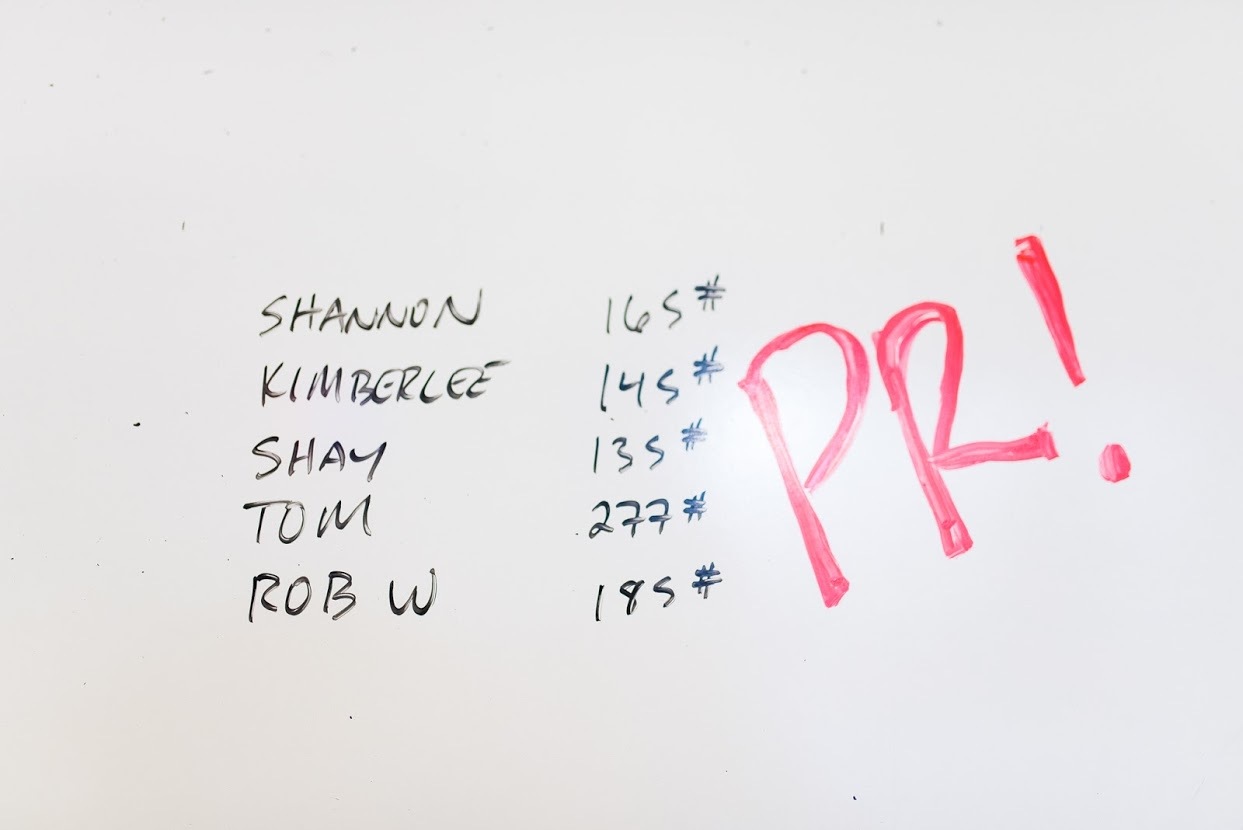 SHANNON 165#
KIMBERLEE 145#
SHAY 135#
TOM 277#
ROB W 185#
PR!